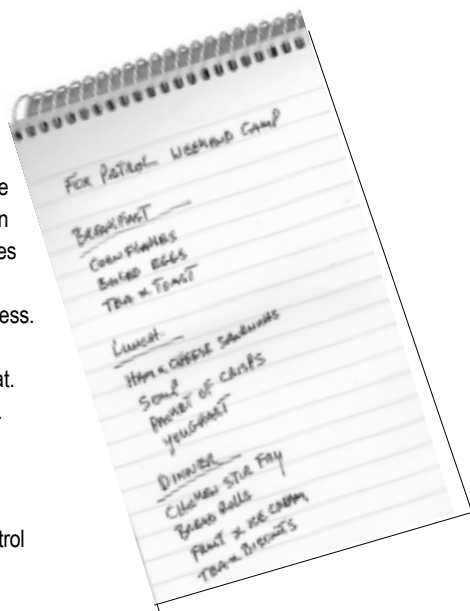 e
n
es
ess.
at.
.
trol
FOX PATROL WEEKEND CAMP
BREAKFAST
CORNFLAKES
BOILED EGGS
TEA & TOAST
LUNCH
HAM & CHEESE
SOUP
PACKET OF CRISPS
YOUGHART
DINNER
CHICKEN STIR FRY
BREAD ROLLS
FRUIT & ICE CREAM
TEA & BISCUITS